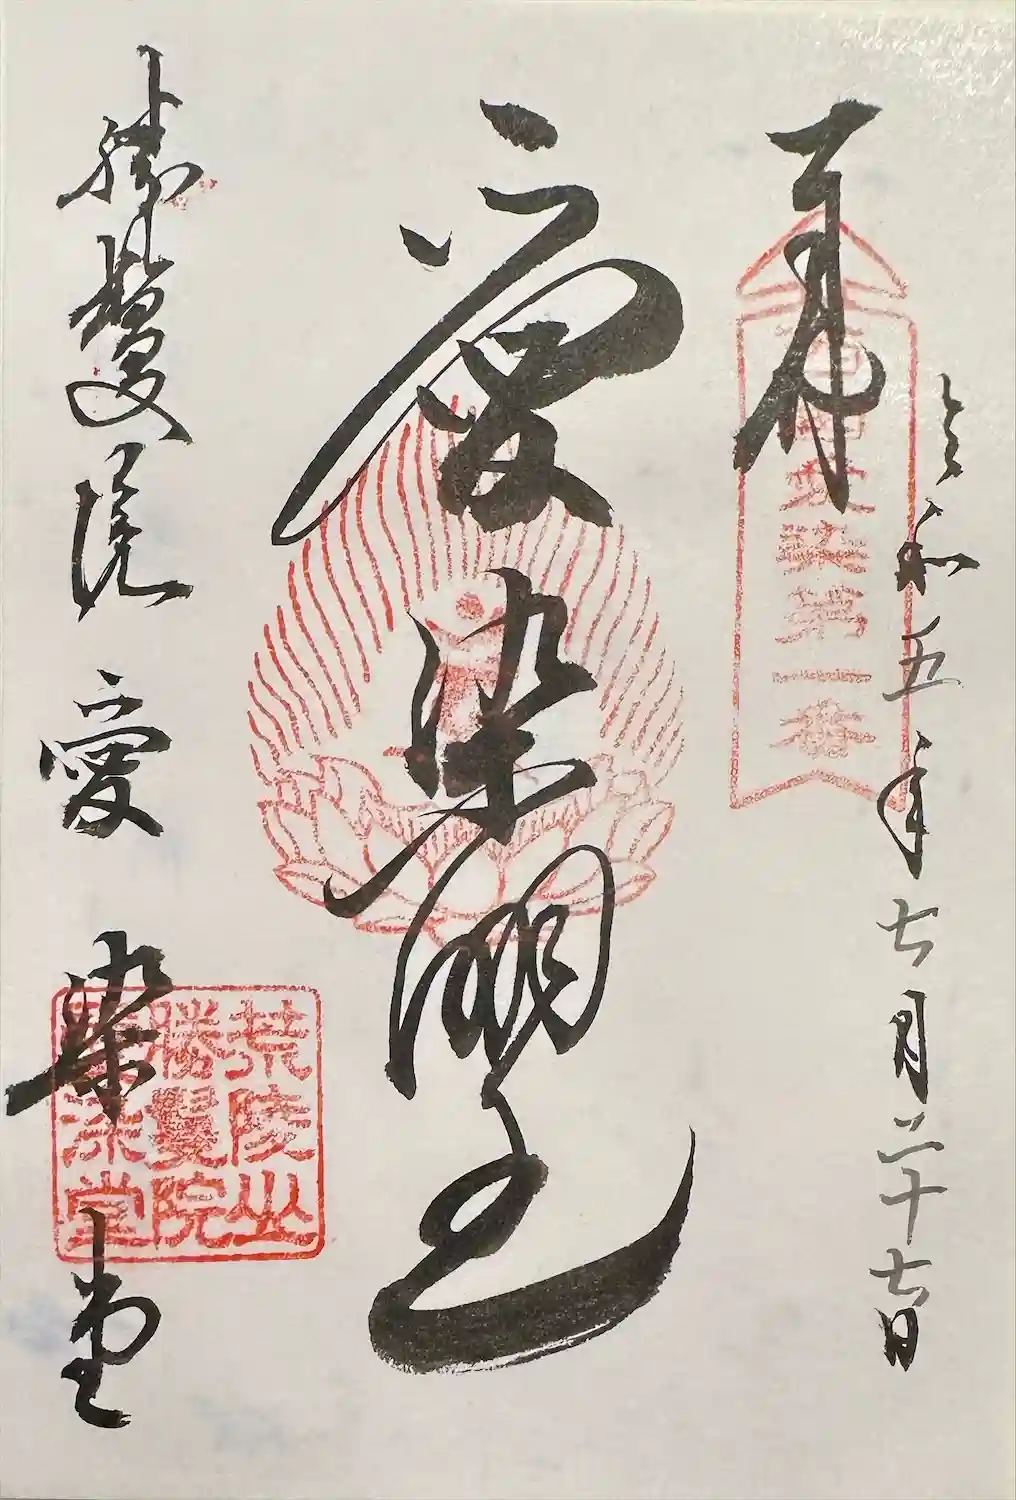 令和五年七月二十七日
西国愛染第一番
愛染明王
勝鬘院 愛染堂
荒陵山
勝鬘院
愛染堂